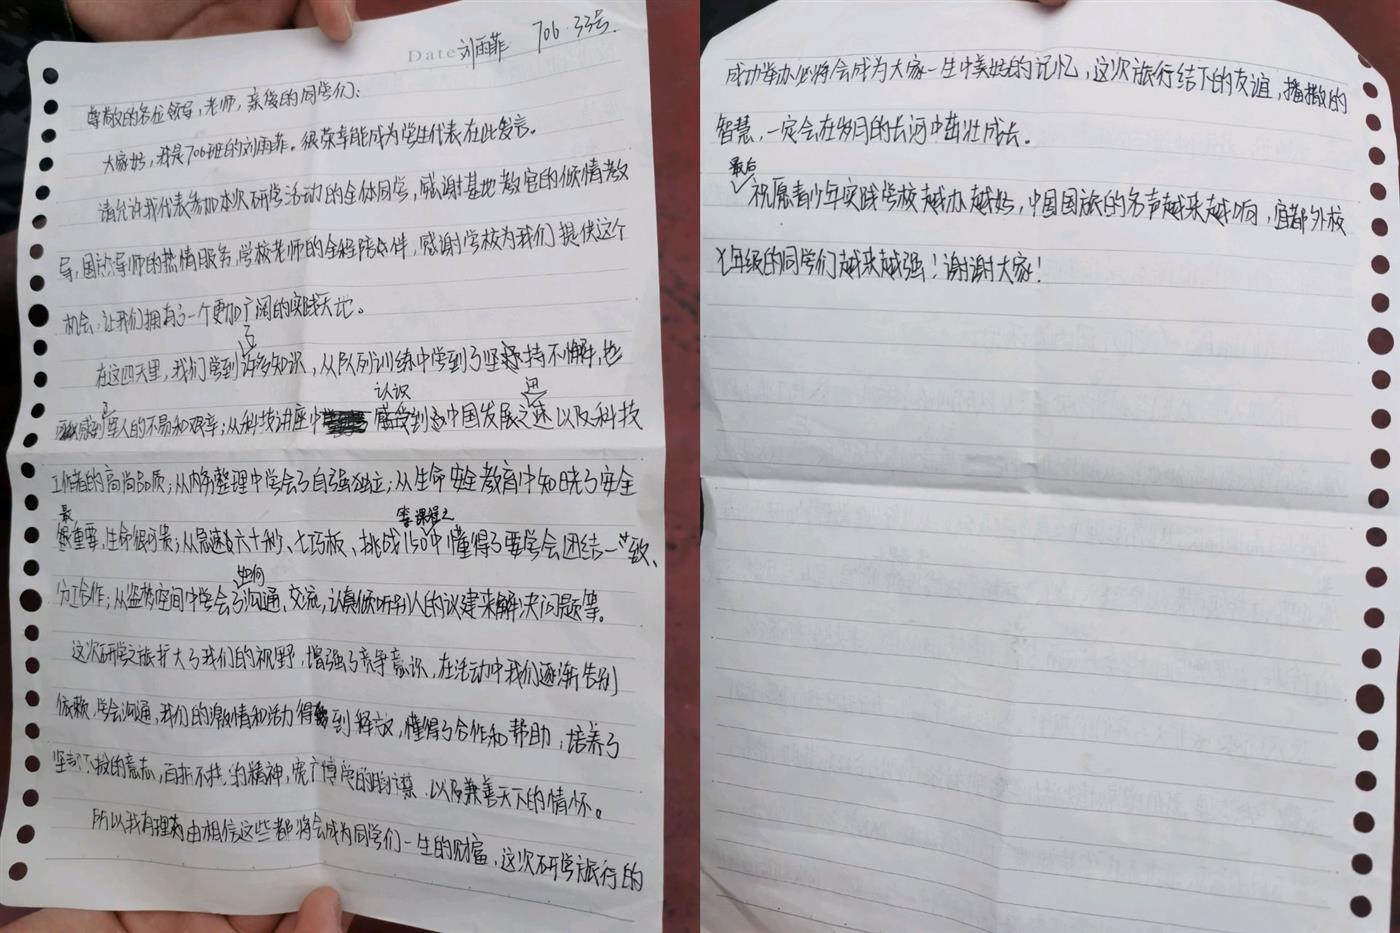 Date 刘雨菲 706·33号
尊敬的各位领导,老师,亲爱的同学们:
大家好,我是706班的刘雨菲。很荣幸能成为学生代表在此发言。
请允许我代表参加本次研学活动的全体同学,感谢基地教官的倾情教
导,国旅导师的热情服务,学校老师的全程陪伴,感谢学校为我们提供这个
机会,让我们拥有了一个更加广阔的实践天地。
在这四天里,我们学到了许多知识,从队列训练中学到了坚持不懈,也
感到了军人的不易和艰辛;从科技讲座中认识到中国发展之迅速以及科技
工作者的高尚品质;从内务整理中学会了自强独立;从生命安全教育中知晓了安全
最重要,生命很可贵;从急速六十秒、七巧板、挑战150等课程之中懂得了要学会团结一致、
分工合作;从盗梦空间中学会了如何沟通、交流,认真倾听别人的议建来解决问题等。
这次研学之旅扩大了我们的视野,增强了竞争意识,在活动中我们逐渐告别
依赖,学会沟通,我们的激情和活力得到释放,懂得了合作和帮助,培养了
坚韧不拔的意志,百折不挠的精神,宽广博学的胸襟,以及兼善天下的情怀。
所以我有理由相信这些都将会成为同学们一生的财富,这次研学旅行的
成功举办必将会成为大家一生中美好的记忆,这次旅行结下的友谊,播撒的
智慧,一定会在岁月的长河中茁壮成长。
最后祝愿青少年实践学校越办越好,中国国旅的名声越来越响,宜都外校
七年级的同学们越来越强!谢谢大家!